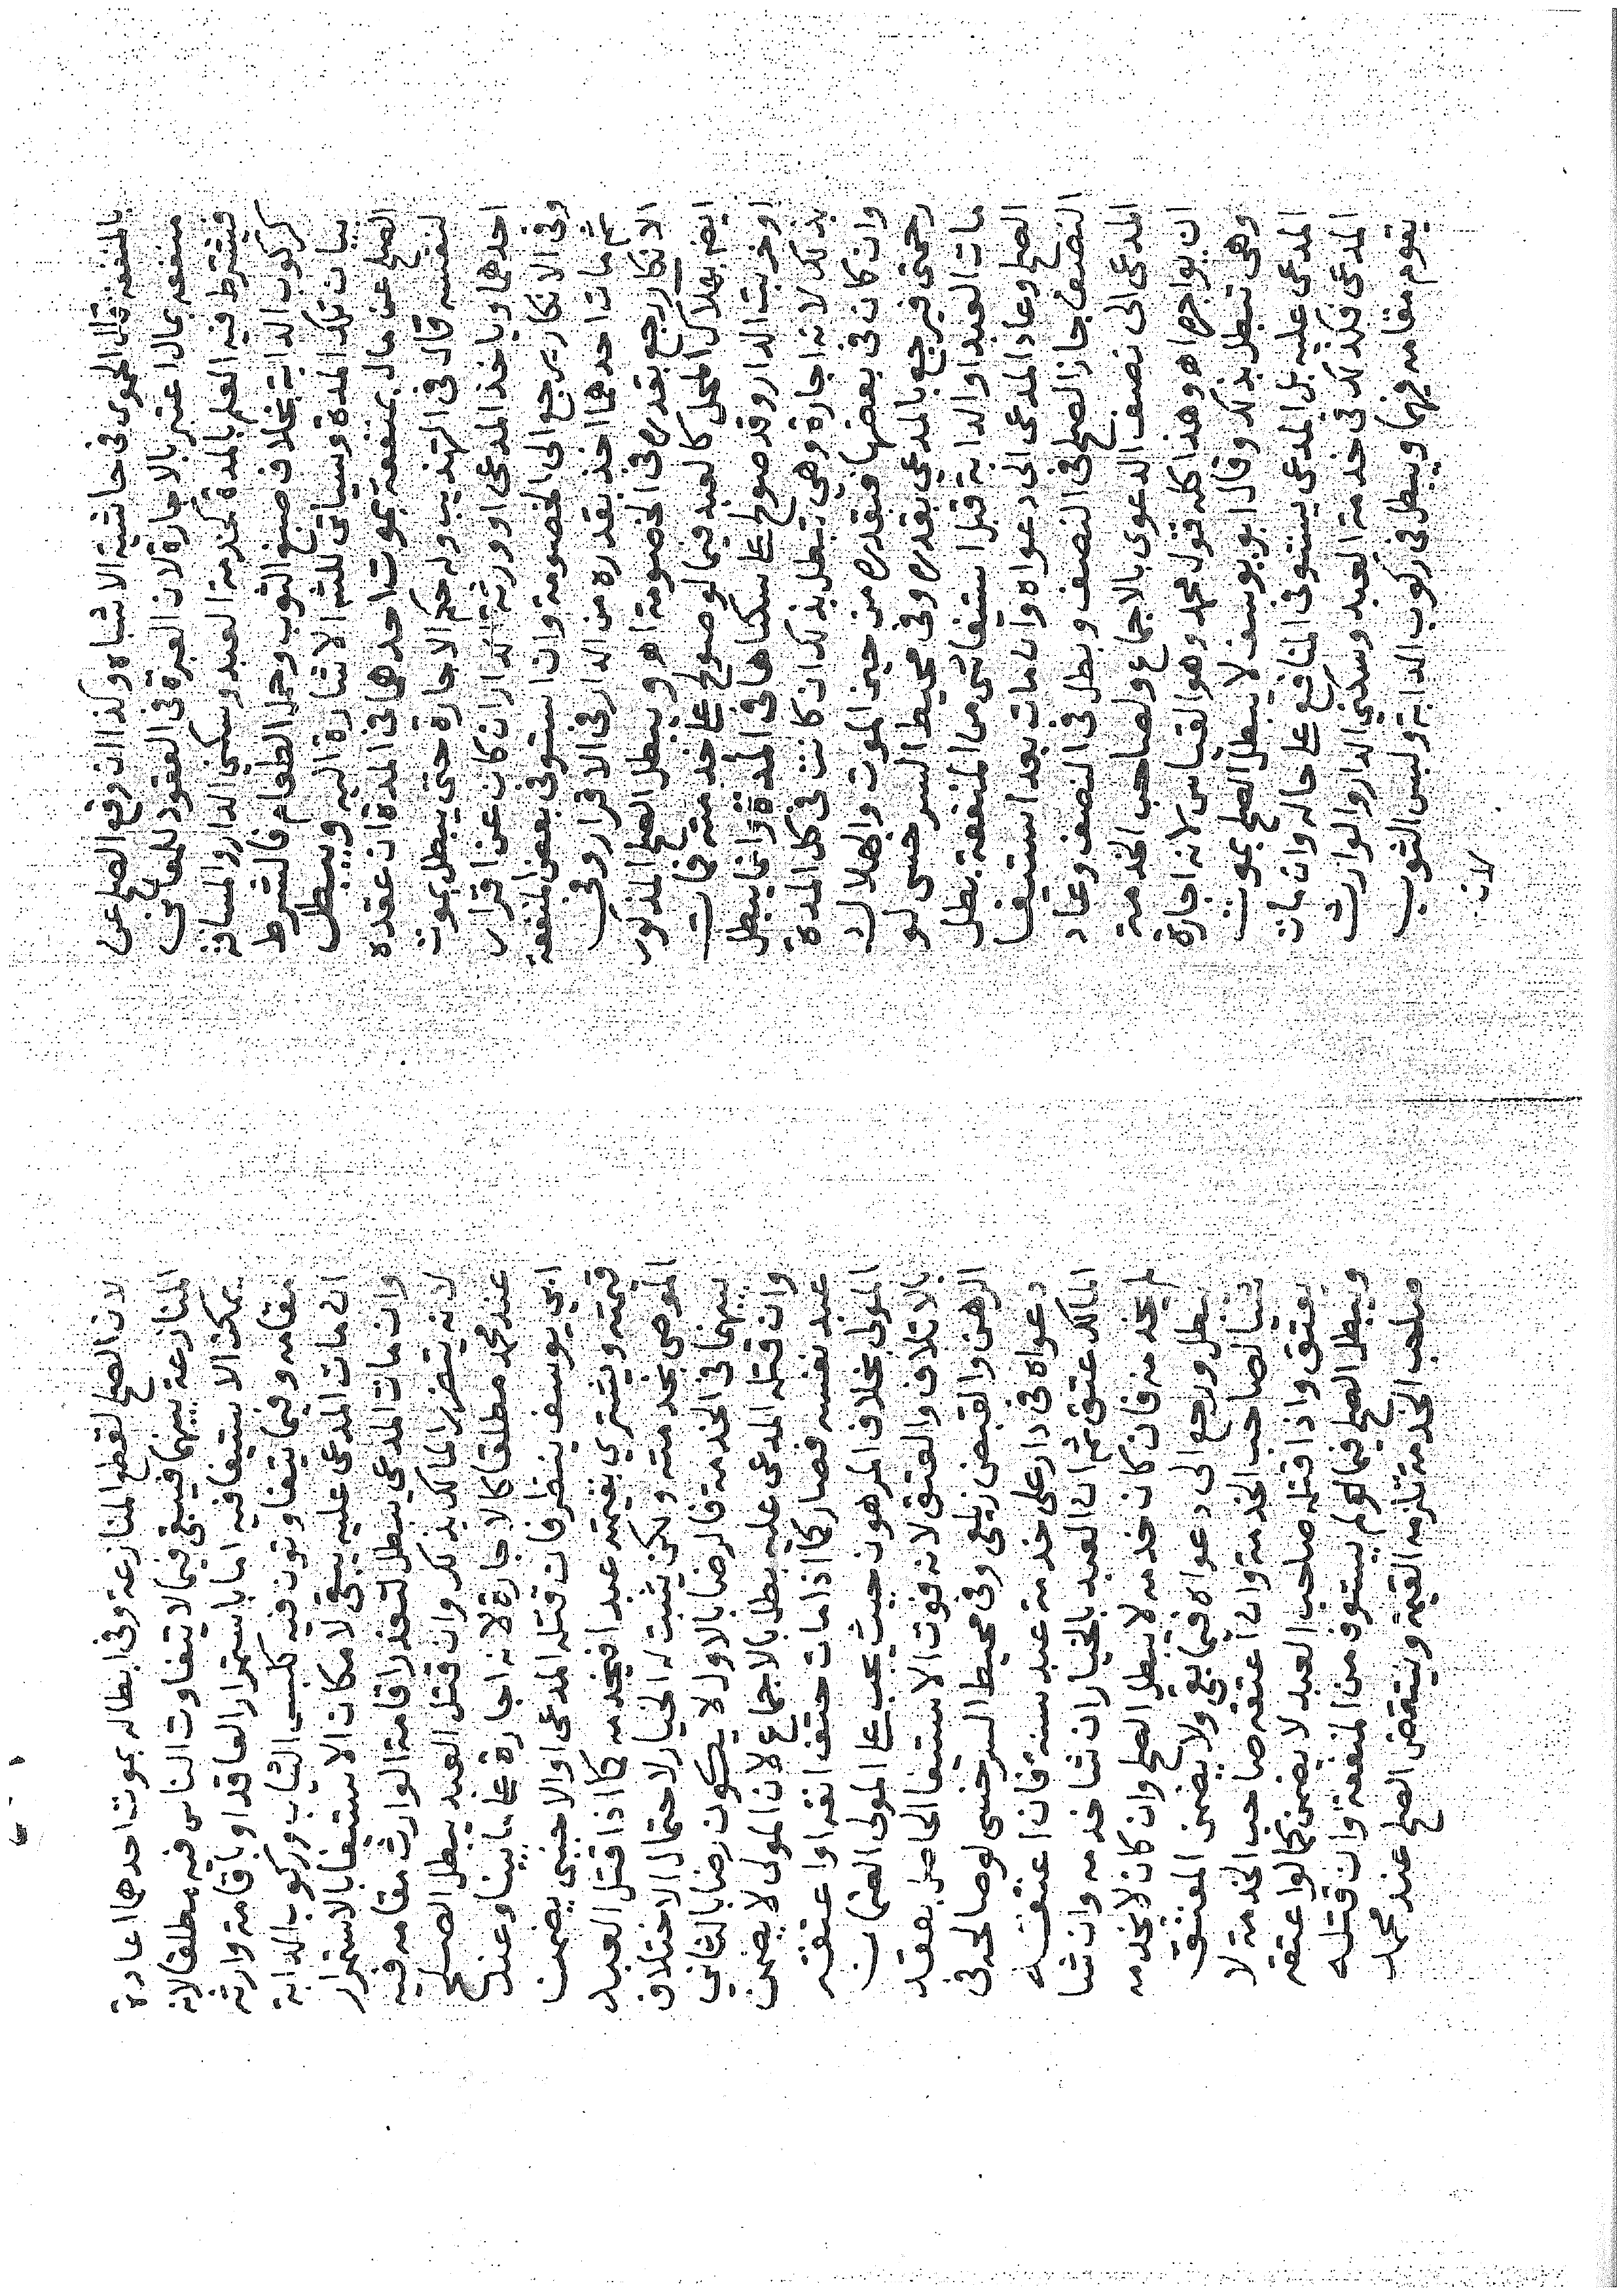 بالمنفعة قال الحموي في حاشية الاشباه وكذا ان وقع الصلح عن
منفعه بمال اعتبر بالاجارة لان العبرة في العقود للمعاني
فيشترط فيه العلم بالمدة كخدمة العبد وسكنى الدار والمسافة
كركوب الدابة بخلاف صبغ الثوب وحمل الطعام فالشرط
بيان تلك المدة وسياتي للشه الاشارة اليه ويبطل
الصلح عن مال بمنفعة بموت احدهما في المدة ان عقده
لنفسه قال في التهذيب وله حكم الاجارة حتى يبطل بموت
احدهما وياخذ المدعى او ورثته الدار ان كان عن اقرار
وفي الانكار يرجع الى الخصومة وان استوفى بعض المنفعة
ثم مات احدهما اخذ بقدره من الدار في الاقرار وفي
الانكار رجع بقدره في الخصومة اهـ ويبطل الصلح المذكور
ايضا بهلاك المحل كالعبد فيما لو صولح على خدمته فمات
او خربت الدار وقد صولح على سكناها في المدة وانما يبطل
بذلك لانه اجارة وهي تبطل بذلك ان كانت في كل المدة
وان كان في بعضها فبقدره من حين الموت والهلاك
رحمتي فيرجع بالمدعي بقدره وفي محيط السرخسي لو
مات العبد او الدابة قبل استيفاء شي من المنفعة بطل
الصلح وعاد المدعى الى دعواه وان مات بعد استيفا
النصف جاز الصلح في النصف وبطل في النصف وعاد
المدعى الى نصف الدعوى بالاجماع ولصاحب الخدمة
ان يواجره اهـ وهذا كله قول محمد وهو القياس لانه اجارة
وهي تبطل بذلك وقال ابو يوسف لا يبطل الصلح بموت
المدعى عليه بل المدعي يستوفى المنافع على حاله وان مات
المدعى فكذلك في خدمة العبد وسكنى الدار والوارث
يقوم مقامه فيهما ويبطل في ركوب الدابة ولبس الثوب
لان
لان الصلح لقطع المنازعة وفي ابطاله بموت احدهما اعادة
المنازعة بينهما فيبقى فيما لا يتفاوت الناس فيه مطلقا لانه
يمكن الاستيفا فيه اما باستمرار العاقد او باقامة وارثه
مقامه وفيما يتفاوتون فيه كلبس الثياب وركوب الدابة
ان مات المدعى عليه يبقى لامكان الاستيفا بالاستمرار
وان مات المدعي يبطل لتعذر اقامة الوارث مقامه فيه
لانه يتضرر المالك بذلك وان قتل العبد يبطل الصلح
عند محمد مطلقا كالاجارة لانه اجارة على ما بينا وعند
ابي يوسف ينظر فان قتله المدعى او الاجنبي يضمن
قيمته ويشتري بقيمته عبدا فيخدمه كما اذا قتل العبد
الموصى بخدمته ولكن يثبت له الخيار لاحتمال الاختلاف
بينهما في الخدمة فالرضا بالاول لا يكون رضا بالثاني
وان قتله المدعى عليه بطل بالاجماع لان المولى لا يضمن
عبد نفسه فصار كما اذا مات حتف انفه او اعتقه
المولى بخلاف المرهون حيث يجب على المولى الضمان
بالاتلاف والعتق لانه فوت الاستيفا الحاصل بعقد
الرهن والقبض زيلعى وفي محيط السرخسى لو صالحه في
دعواه في دار على خدمة عبد سنة فان اعتقه
المالك عتق ثم ان العبد بالخيار ان شا خدمه وان شا
لم يخدمه فان كان خدمه لا يبطل الصلح وان كان لا يخدمه
بطل ورجع الى دعواه فيما بقى ولا يضمن المعتق
شيئا لصاحب الخدمة وان اعتقه صاحب الخدمة لا
يعتق واذا قتله صاحب العبد لا يضمن كما لو اعتقه
ويبطل الصلح فيما لم يستوف من المنفعة وان قتله
صاحب الخدمة تلزمه القيمة وينتقض الصلح عند محمد